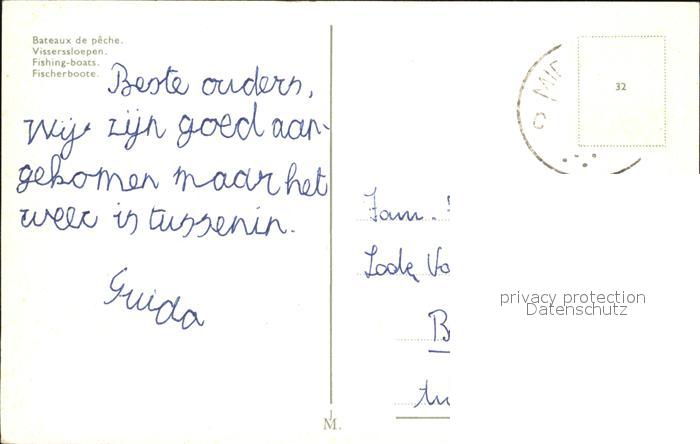 Bateaux de pêche.
Vissersloepen.
Fishing-boats.
Fischerboote.
Beste ouders,
Wij zijn goed aan-
gekomen maar het
weer is tussenin.
Guida
MI
32
Fam.
Lode Vo
B
M.
privacy protection
Datenschutz